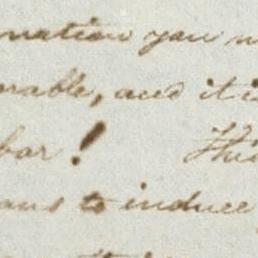 mation you
rable, and it i
bar! This
ans to induce